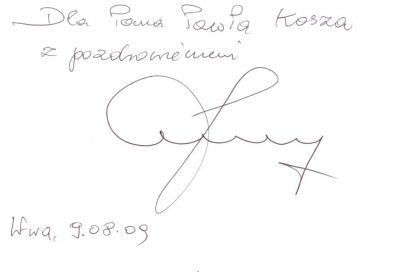 Dla Pana Pawła Kosza
z pozdrowieniami
W-wa, 9.08.09